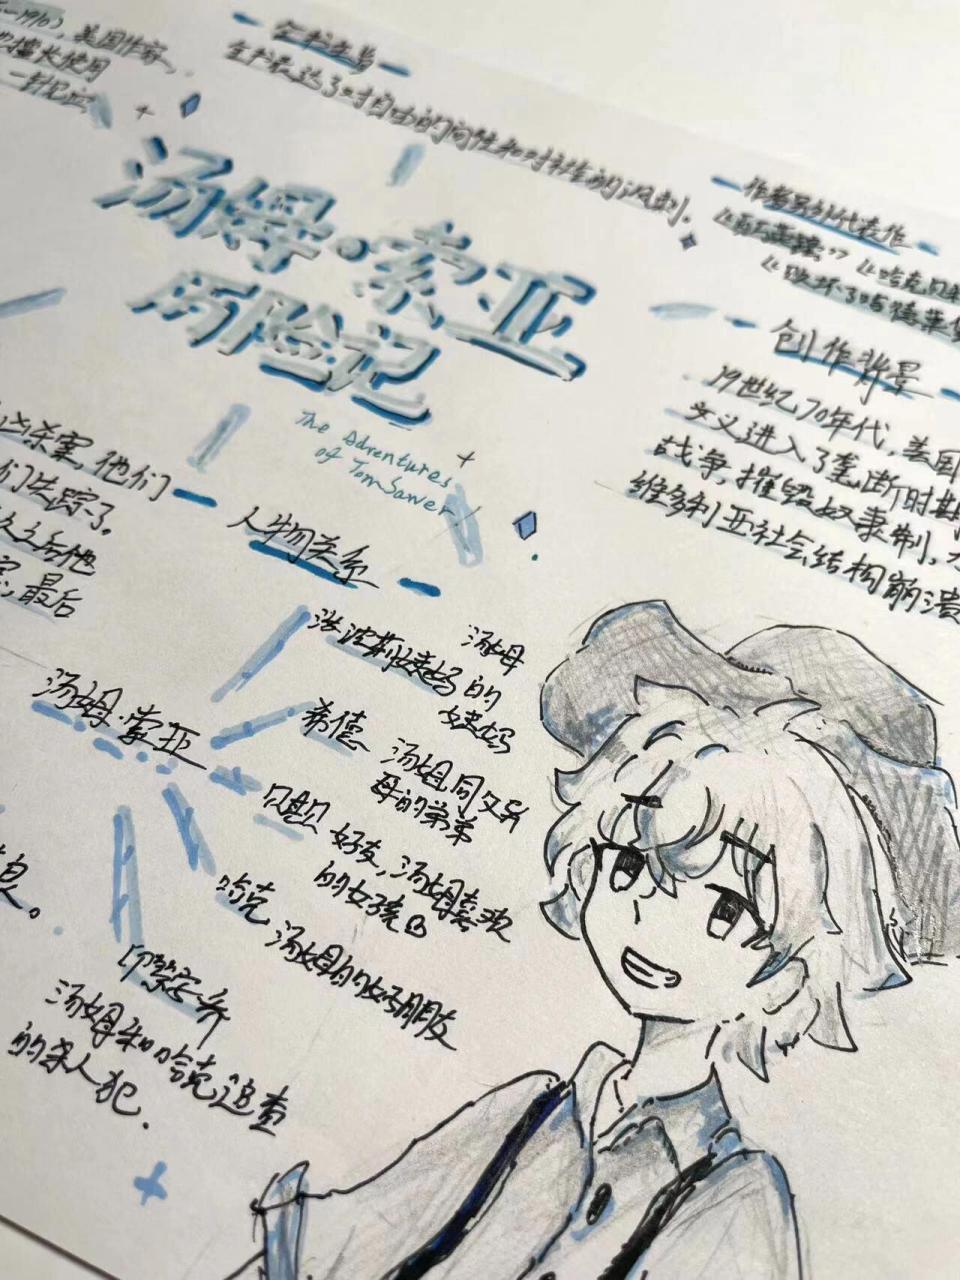 -1910), 美国作家,
擅长使用
一针见血
全书主旨
全书表达了对自由的向往和对社会的讽刺.
汤姆·索亚
历险记
The Adventures
of Tom Sawer
作者另外代表作
《百万英镑》《哈克贝
《败坏了哈德莱堡
创作背景
19世纪70年代, 美国
主义进入了垄断时期
战争, 摧毁奴隶制,
维多利亚社会结构崩溃
凶杀案, 他们
们失踪了.
久之后他
最后
人物关系
汤姆·索亚
波莉姨妈 汤姆的姨妈
希德 汤姆同父异
母的弟弟
贝基 好友, 汤姆喜欢
的女孩
哈克 汤姆的好朋友
印第安·乔
汤姆和哈克追查
的杀人犯.
息。